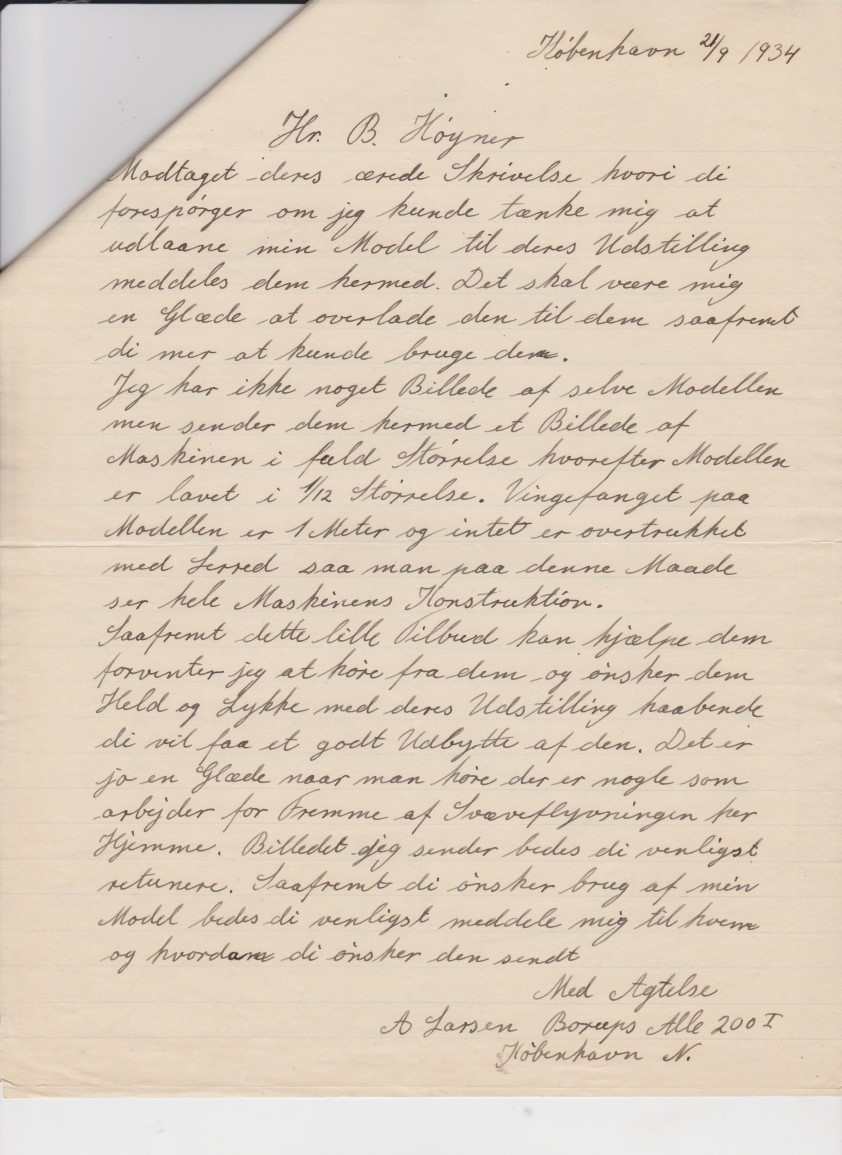 København 21/9 1934
Hr. B. Høyner
Modtaget deres ærede Skrivelse hvori di
forespørger om jeg kunde tænke mig at
udlaane min Model til deres Udstilling
meddeles dem hermed. Det skal være mig
en Glæde at overlade den til dem saafremt
di mer at kunde bruge den.
Jeg har ikke noget Billede af selve Modellen
men sender dem hermed et Billede af
Maskinen i fuld Størrelse hvorefter Modellen
er lavet i 1/12 Størrelse. Vingefanget paa
Modellen er 1 Meter og intet er overtrukket
med Lerred saa man paa denne Maade
ser hele Maskinens Konstruktion.
Saafremt dette lille Tilbud kan hjælpe dem
forventer jeg at høre fra dem og ønsker dem
Held og Lykke med deres Udstilling haabende
di vil faa et godt Udbytte af den. Det er
jo en Glæde naar man høre der er nogle som
arbejder for Fremme af Svæveflyvningen her
Hjemme. Billedet jeg sender bedes di venligst
retunere. Saafremt di ønsker brug af min
Model bedes di venligst meddele mig til hvem
og hvordan di ønsker den sendt
Med Agtelse
A Larsen Borups Alle 200 I
København N.